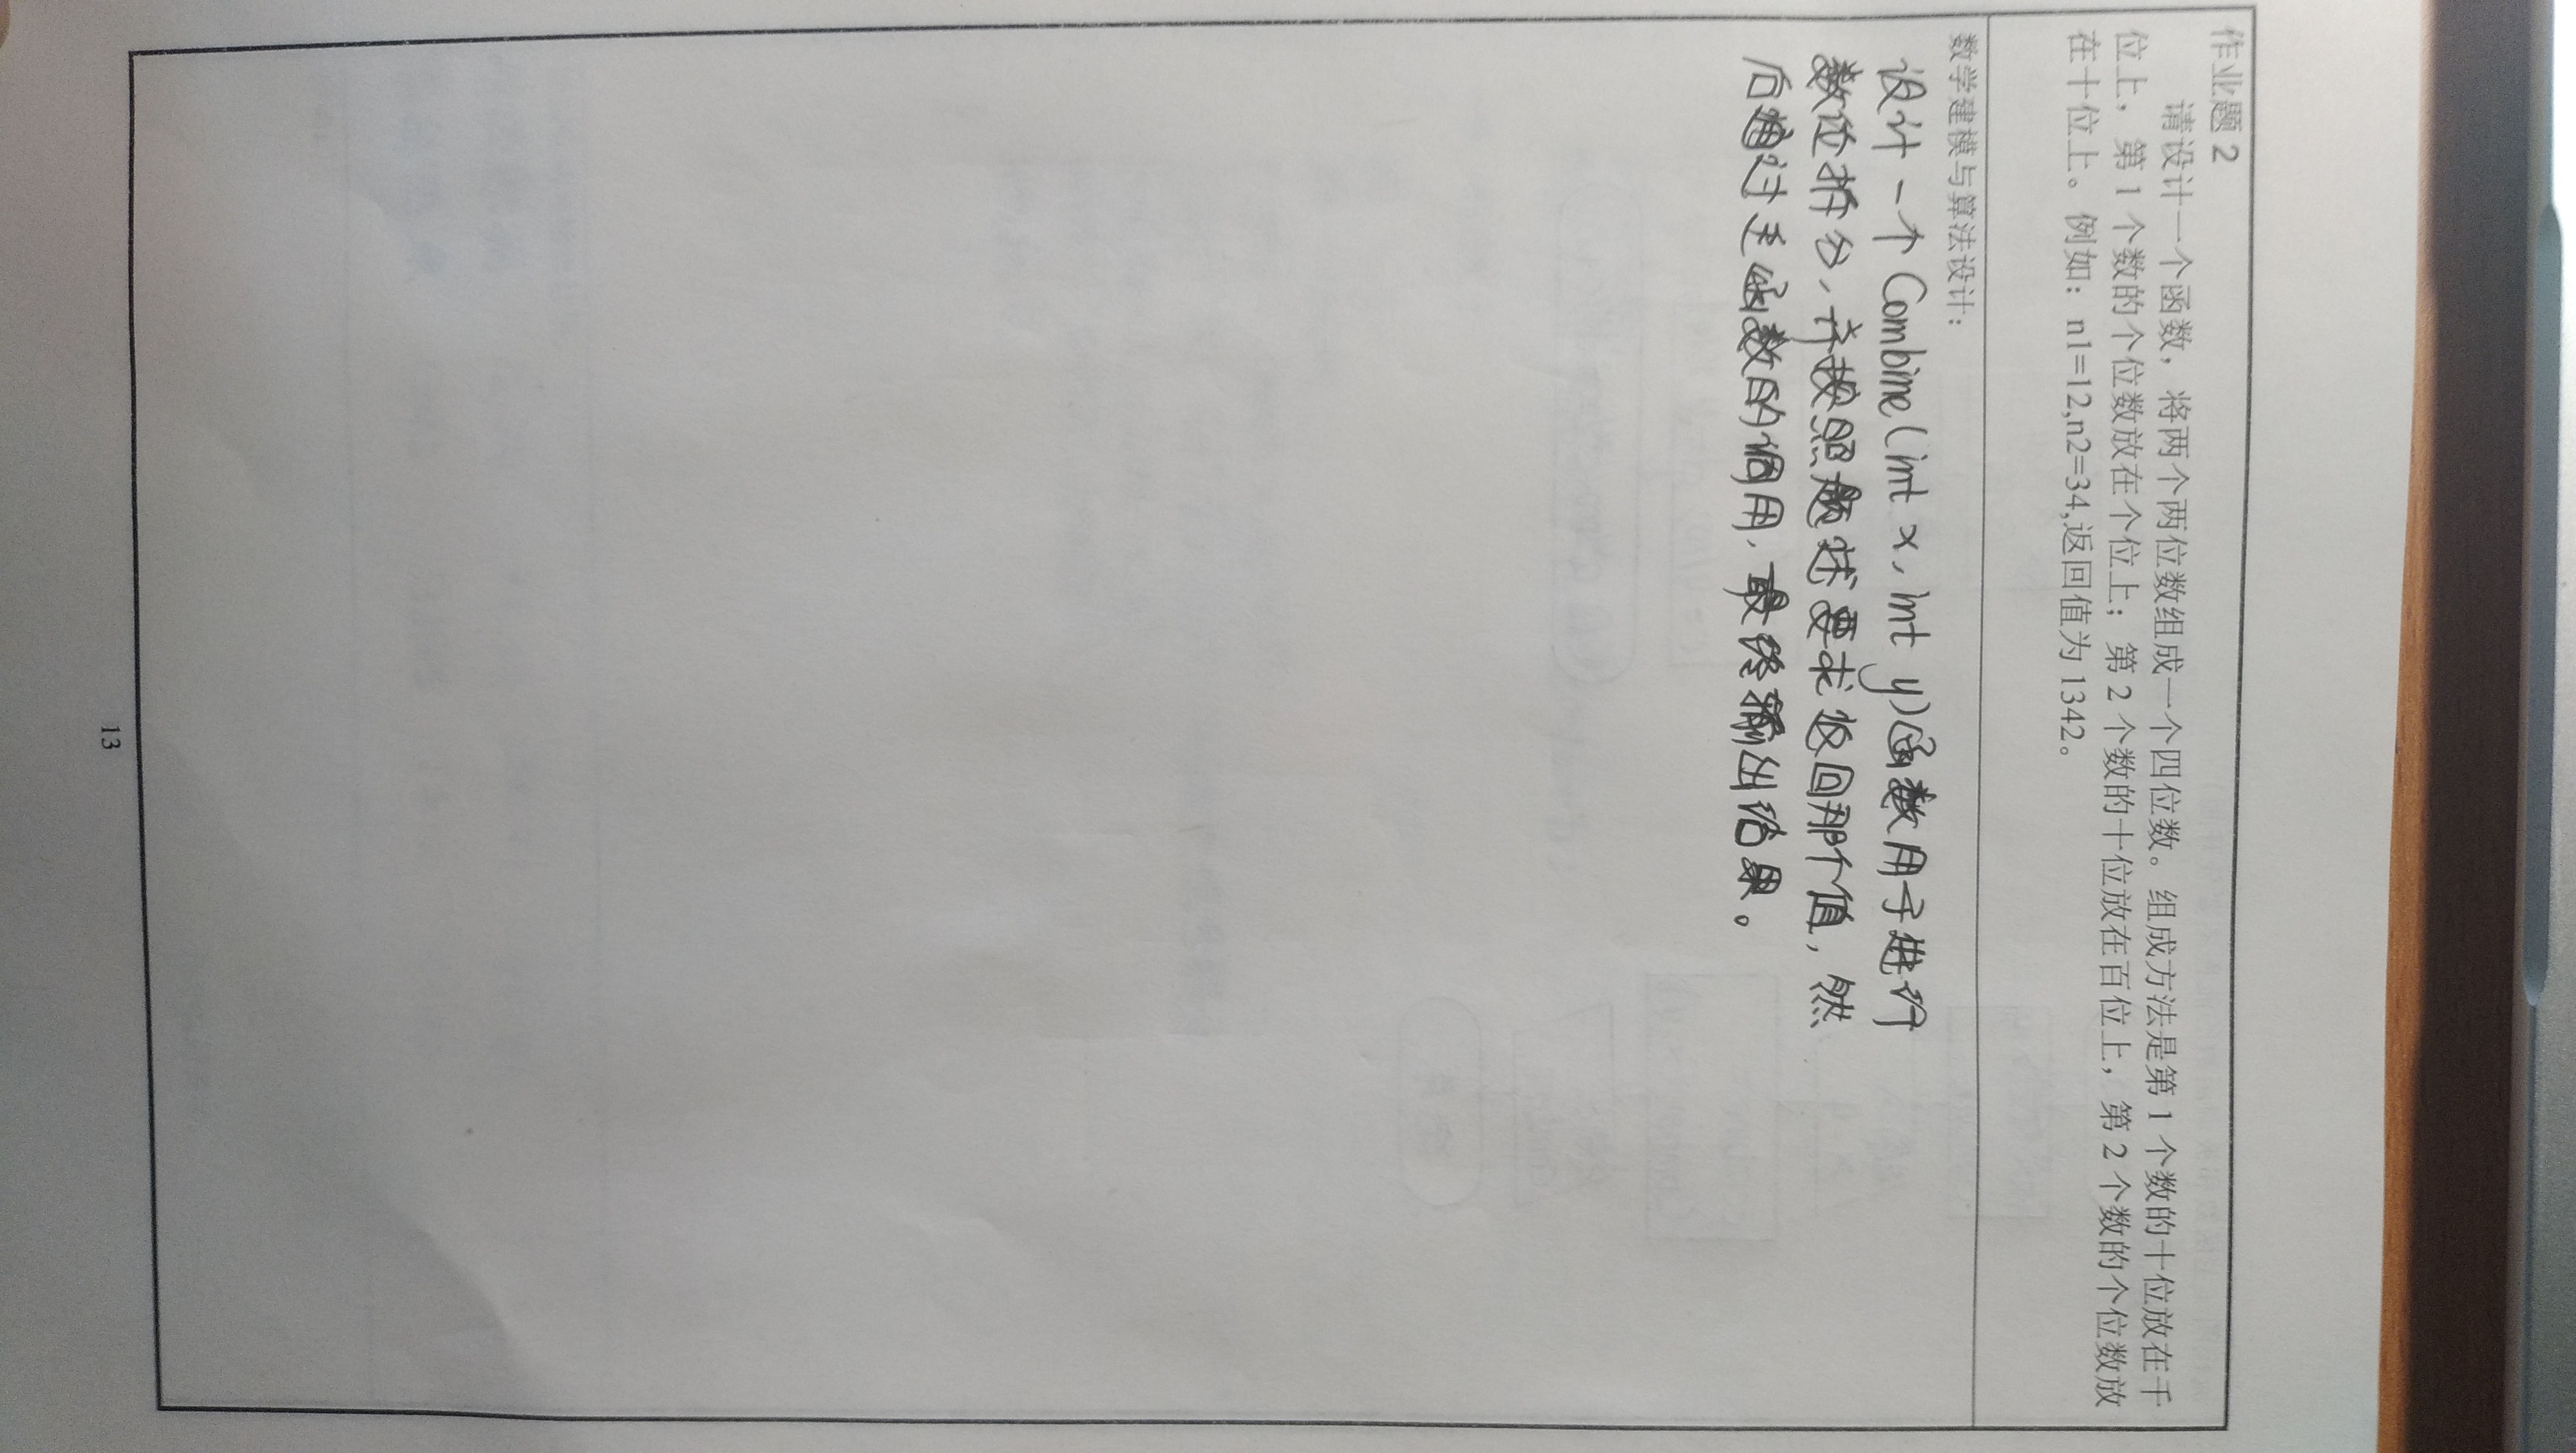 作业题 2
请设计一个函数，将两个两位数组成一个四位数。组成方法是第 1 个数的十位放在千
位上，第 1 个数的个位数放在个位上；第 2 个数的十位放在百位上，第 2 个数的个位数放
在十位上。例如：n1=12,n2=34,返回值为 1342。
数学建模与算法设计：
设计一个 Combine(int x, int y)函数用于进行
数位拆分，并按照题述要求返回那个值，然
后通过主函数的调用，最终输出结果。
13